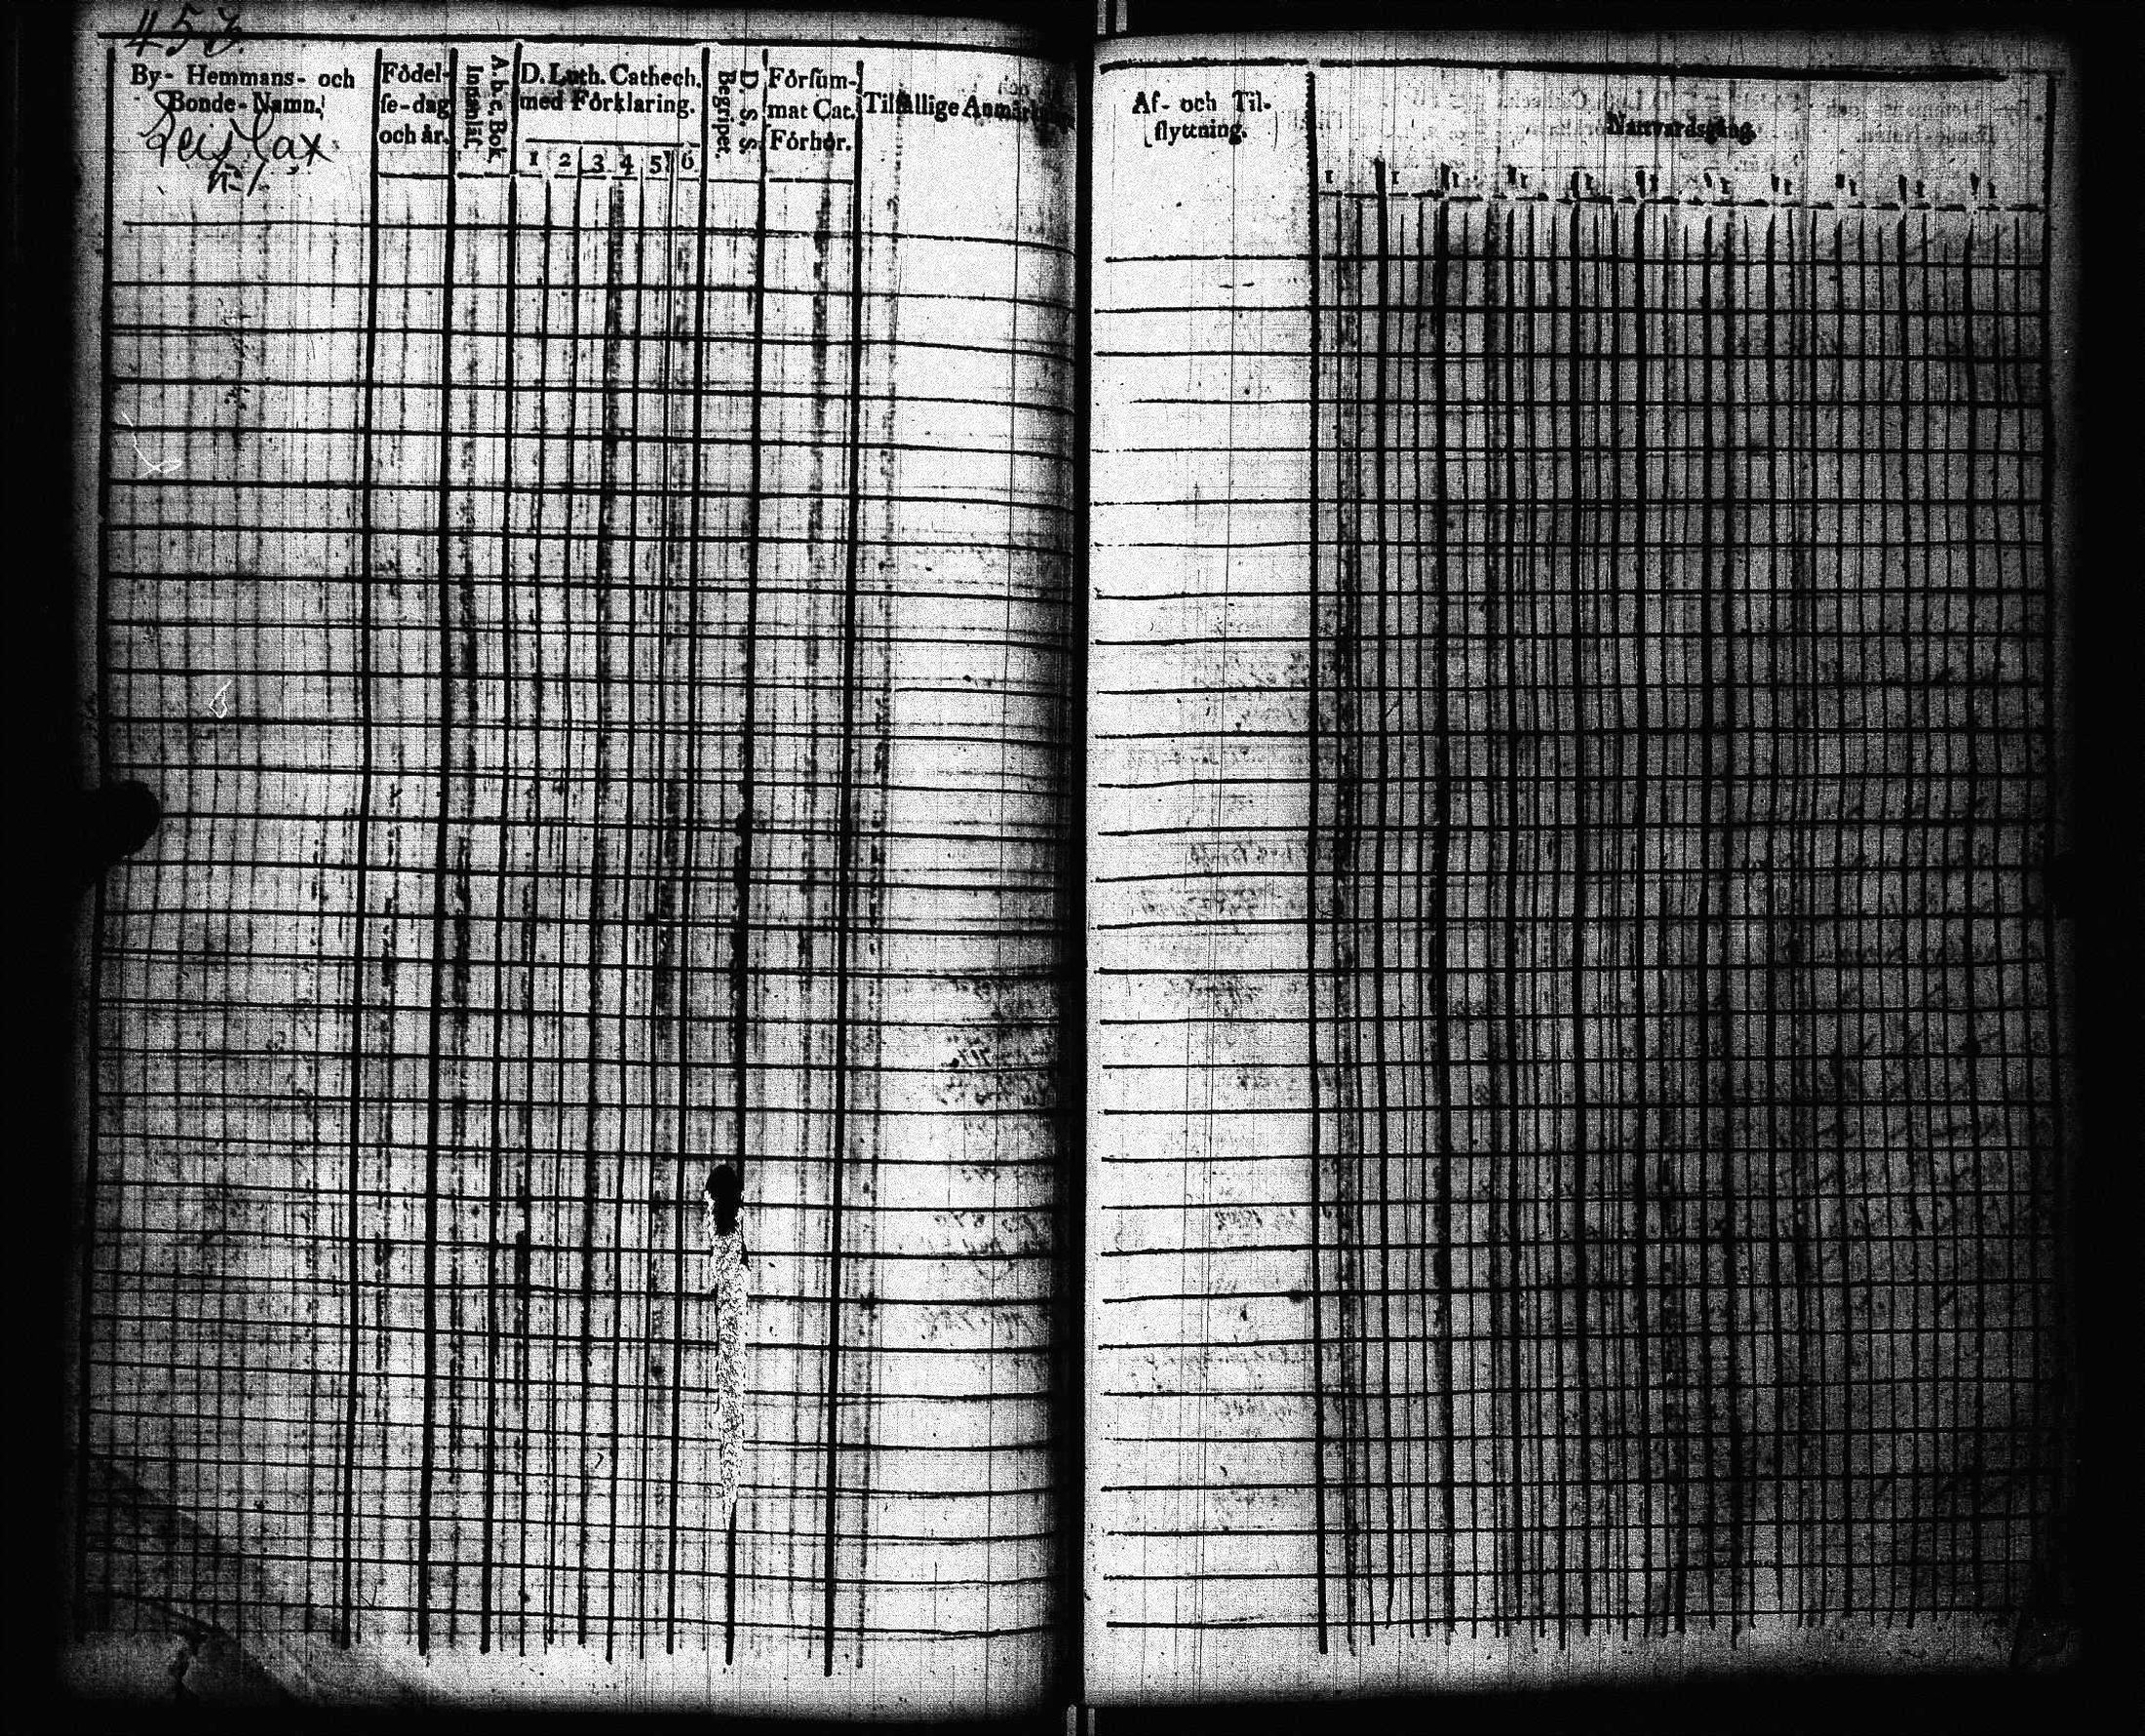 453.
By- Hemmans- och
Bonde-Namn.
N:1.
Födel-
se-dag
och år.
A. b. c. Bok
Innanläs.
D. Luth. Cathech.
med Förklaring.
1 2 3 4 5 6
D. S. S
Begriper.
Försum-
mat Cat.
Förhör.
Tilfällige Anmärkn
Af- och Til-
flyttning.
Nattvardsgång.
1 1 1 1 1 1 1 1 1 1 1